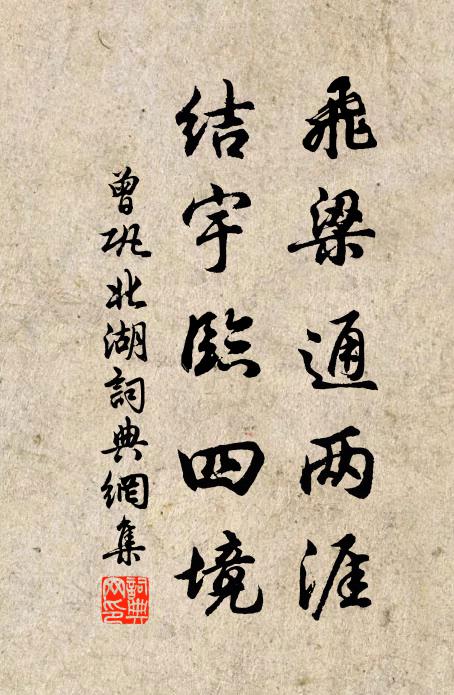 飛梁通两涯
结宇臨四境
曾巩北湖詞典網集
詞典网印